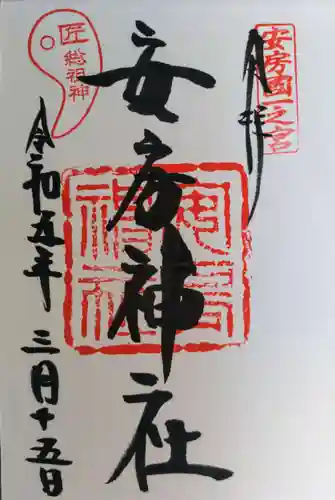 奉拝
安房国一之宮
安房神社
安房神社
匠総祖神
令和五年 三月十五日